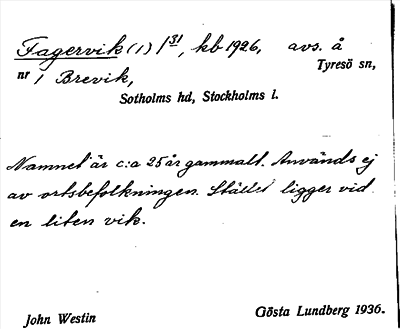 Fagervik (1) 1 31, kb 1926, avs. å
nr 1 Brevik, Tyresö sn,
Sotholms hd, Stockholms l.
Namnet är c:a 25 år gammalt. Används ej
av ortsbefolkningen. Stället ligger vid
en liten vik.
John Westin Gösta Lundberg 1936.